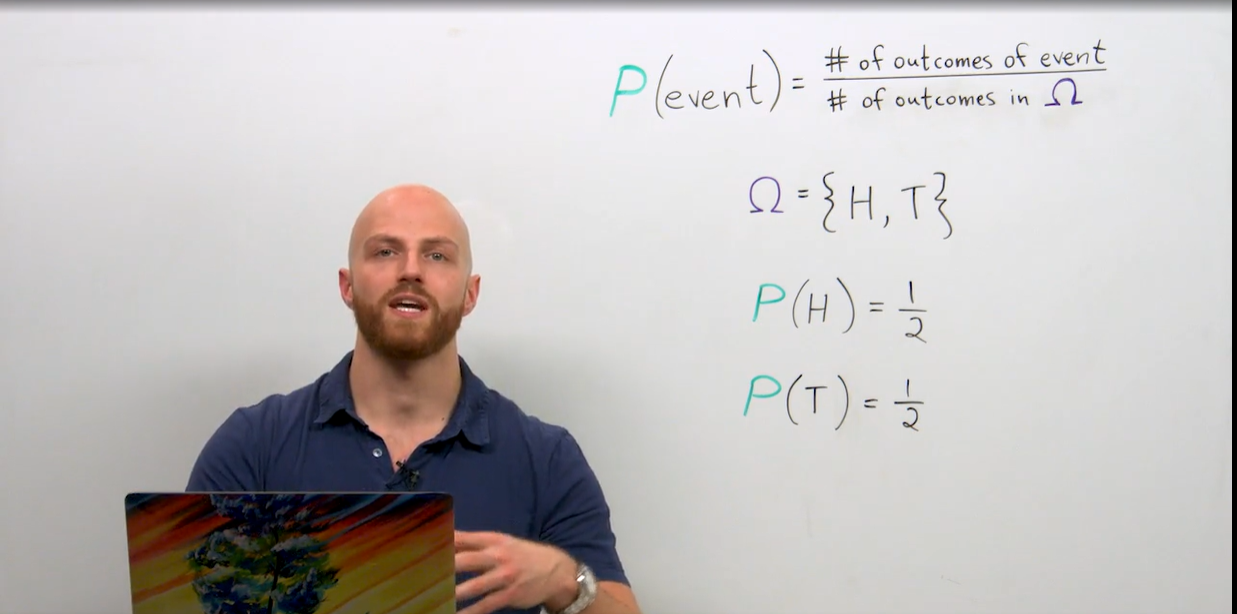 P(event) = # of outcomes of event / # of outcomes in Ω
Ω = {H, T}
P(H) = 1/2
P(T) = 1/2